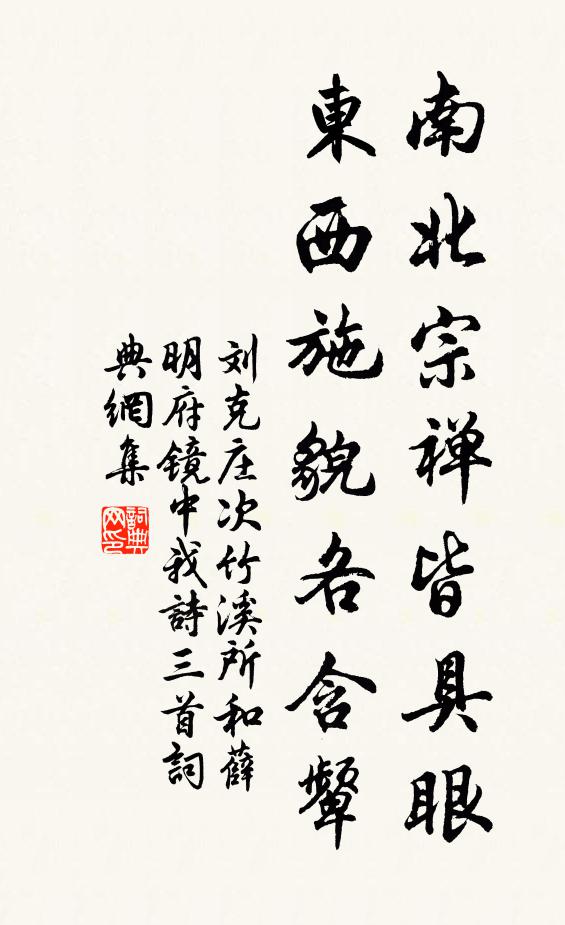 南北宗禅皆具眼
東西施貌各含颦
刘克庄次竹溪所和薛
明府镜中我詩三首詞
典網集
詞典
网印